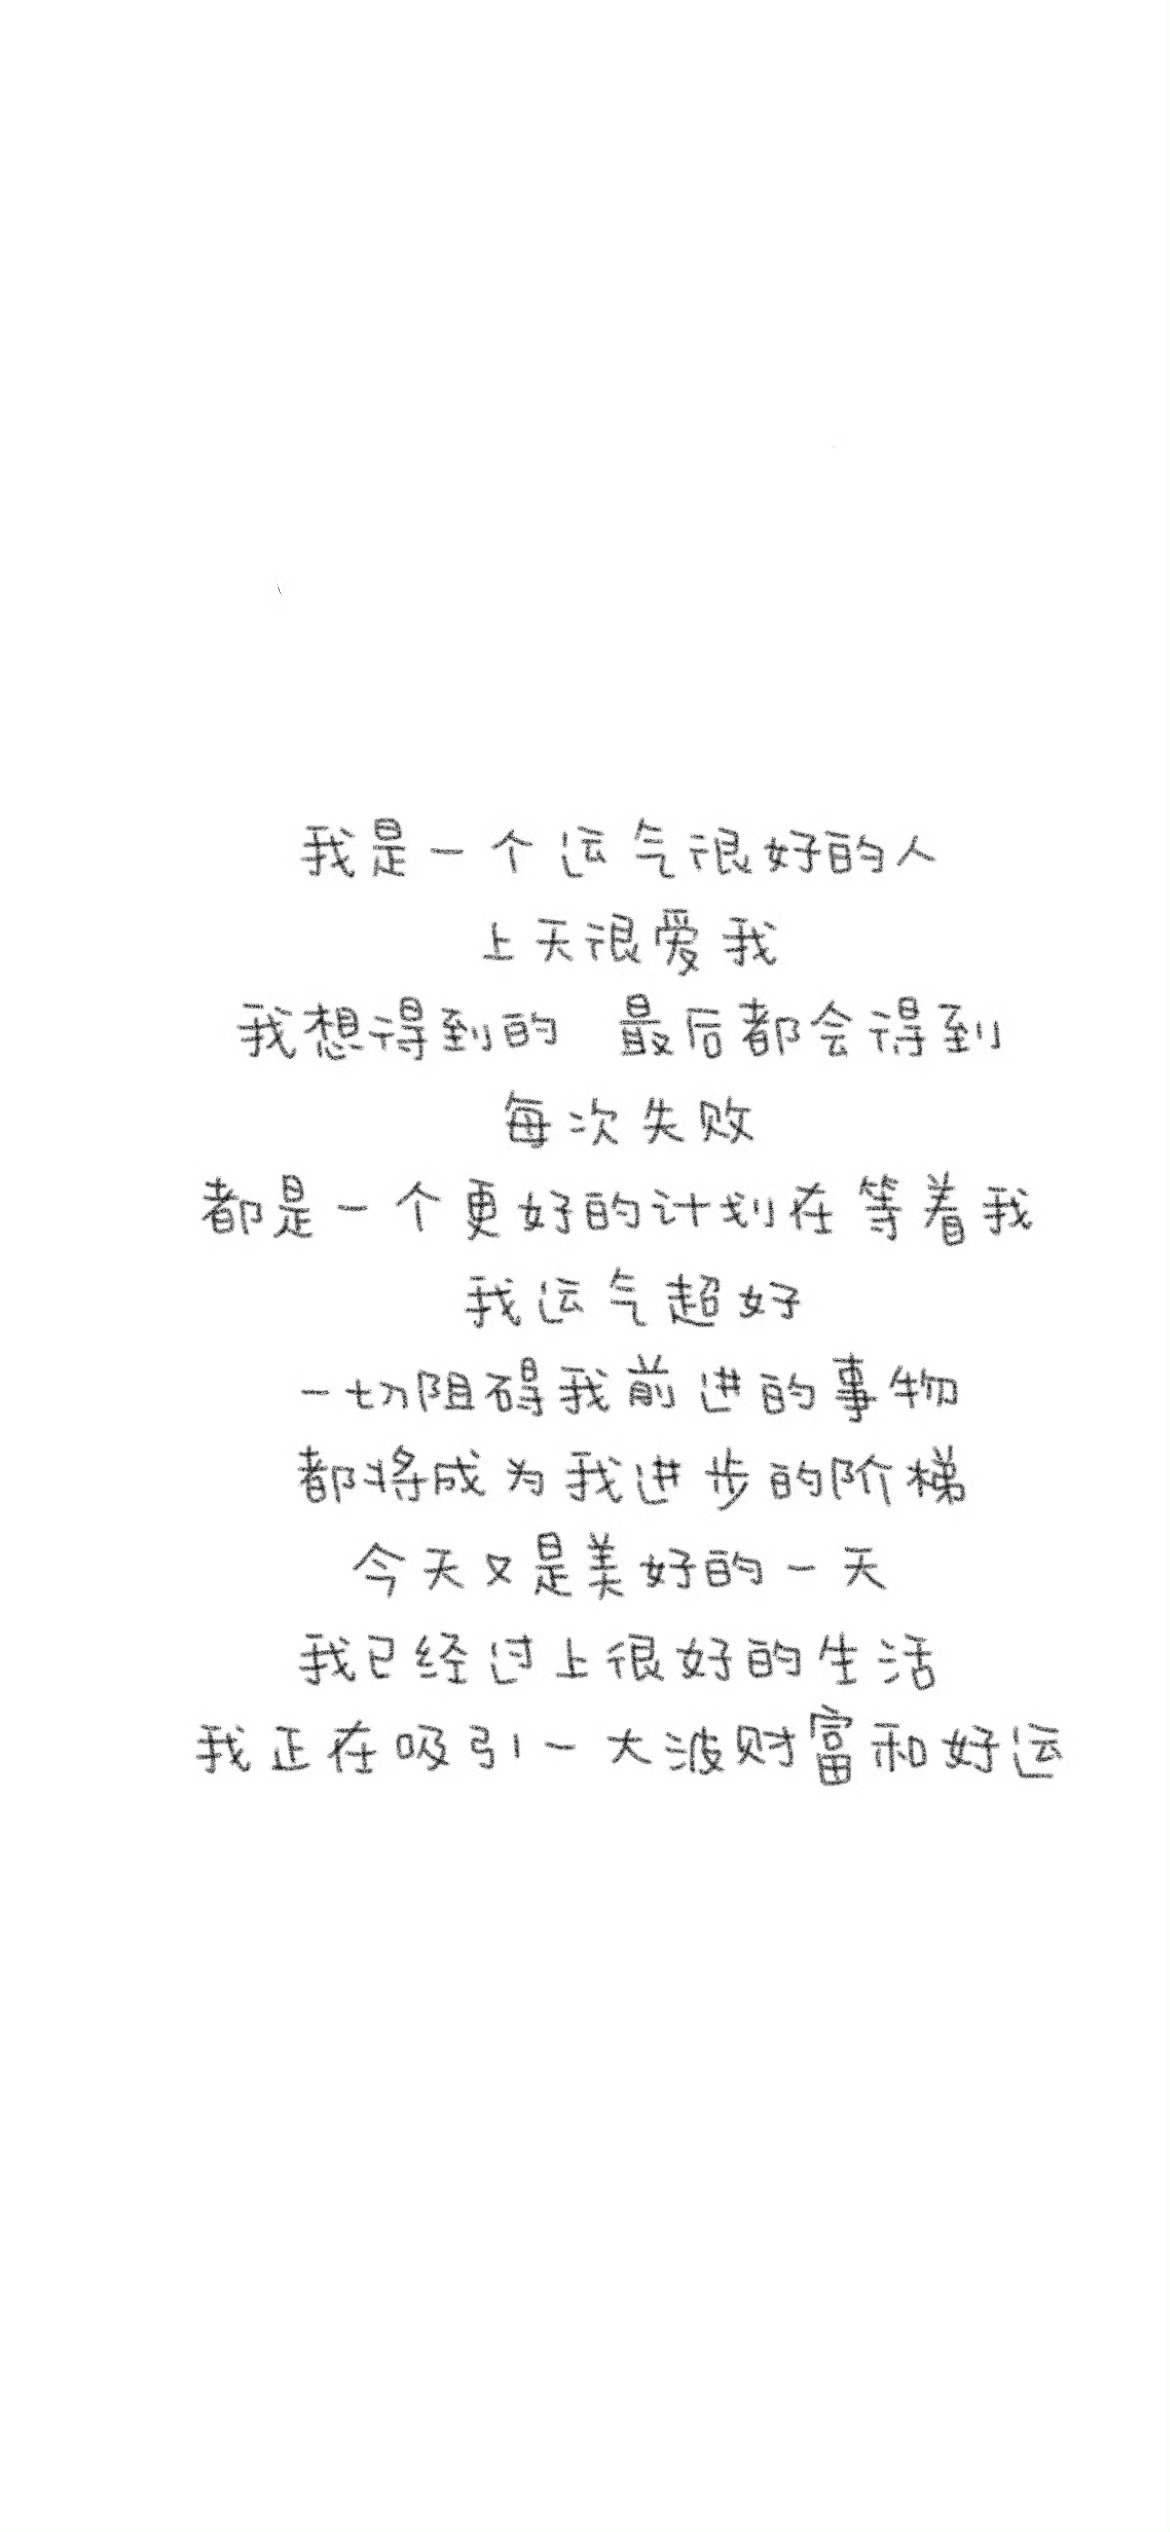 我是一个运气很好的人
上天很爱我
我想得到的 最后都会得到
每次失败
都是一个更好的计划在等着我
我运气超好
一切阻碍我前进的事物
都将成为我进步的阶梯
今天又是美好的一天
我已经过上很好的生活
我正在吸引一大波财富和好运